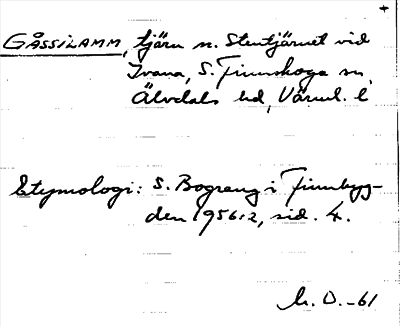 GÅSSILAMM, tjärn n. Stentjärnet vid
Ivana, S. Finnskoga sn,
Älvdals hd, Värml. l
Etymologi: S. Bograng i Finnbyg-
den 1956:2, sid. 4.
M. O. -61